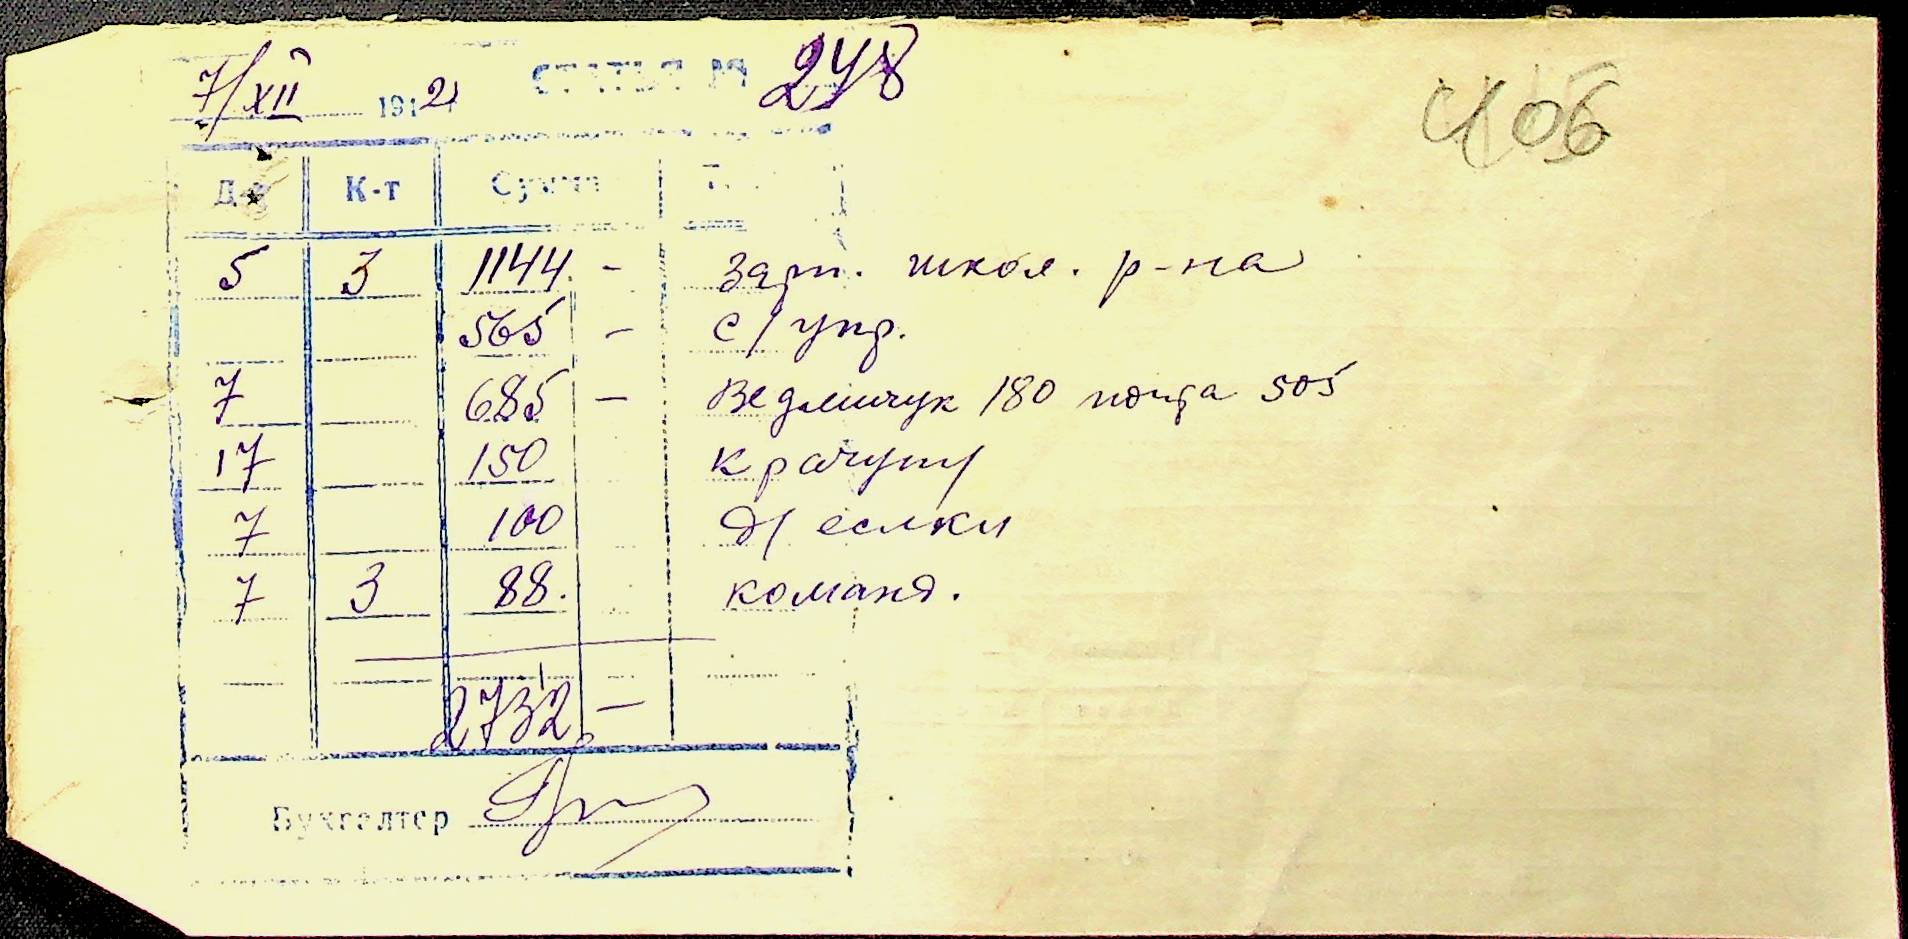 7/XII 1942 СТАТЬЯ № 248
406
Д-т К-т Сумма
5 3 1144 - зарп. школ. р-на
565 - с/упр.
7 685 - Ведминчук 180 почта 505
17 150 Крачуну
7 100 д/ еслки
7 3 88. команд.
2732 -
Бухгалтер